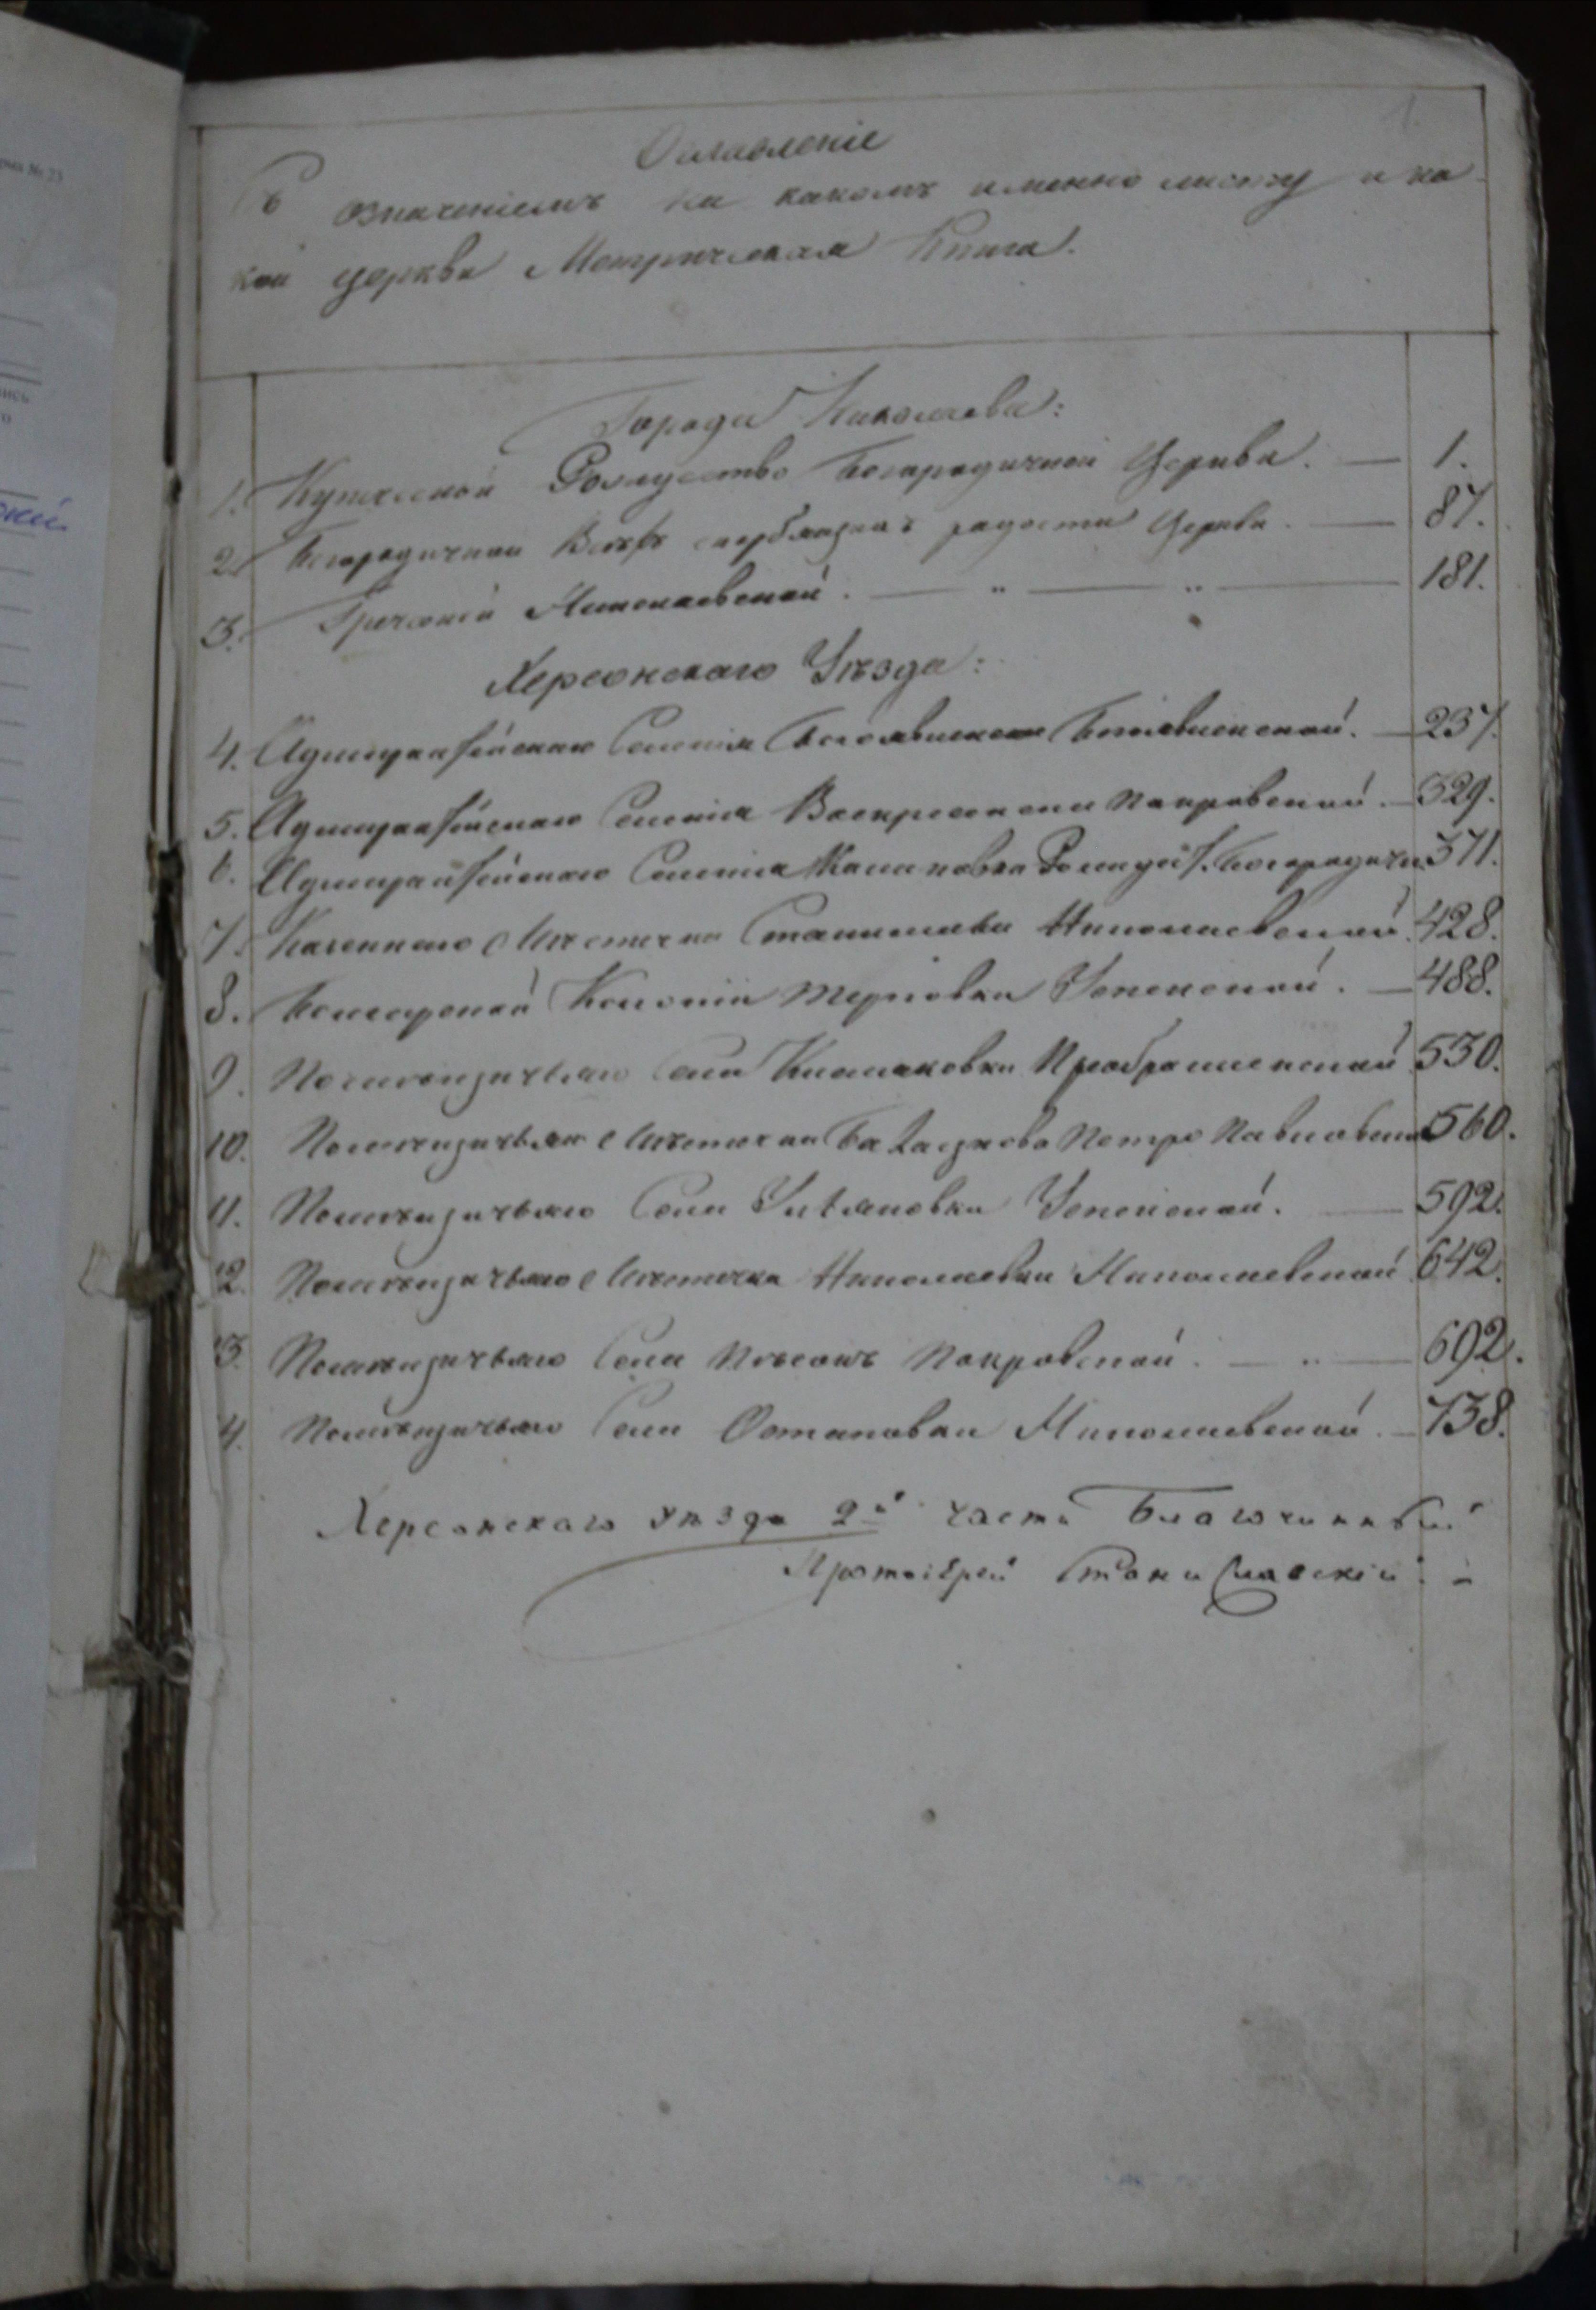 1.
Оглавленіе
Съ означеніемъ на какомъ именно листу и ка-
кой церкви Метрическая Книга.
Города Николаева:
1. Купеческой Рождество Богородичной Церкви. — 1.
2. Богородичной Всѣхъ скорбящихъ радости Церкви. — 87.
3. Греческой Николаевской. — „ — „ — 181.
Херсонскаго Уѣзда:
4. Адмиралтейскаго Селенія Богоявленска Богоявленской. — 237.
5. Адмиралтейскаго Селенія Воскресенска Покровской. — 329.
6. Адмиралтейскаго Селенія Калиновка Рождест. Богородичн. 371.
7. Казеннаго Мѣстечка Станислава Николаевской 428.
8. Болгарской Колоніи Терновки Успенской. — 488.
9. Помѣщичьяго Села Кисляковки Преображенской 530.
10. Помѣщичьяго Мѣстечка Балацково Петро Павловской 560.
11. Помѣщичьяго Села Ульяновки Успенской. — 592.
12. Помѣщичьяго Мѣстечка Николаевки Николаевской 642.
13. Помѣщичьяго Села Пѣсокъ Покровской. — „ — 692.
14. Помѣщичьяго Села Остаповки Николаевской. — 738.
Херсонскаго уѣзда 2й части Благочинный
Протоіерей Станиславскій